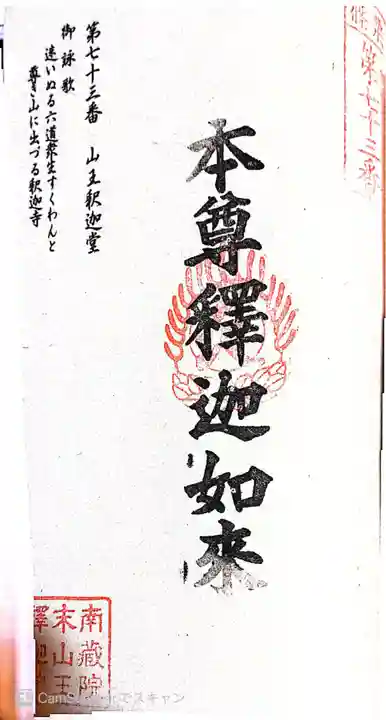 第七十三番
本尊釋迦如來
第七十三番 山王釈迦堂
御詠歌
迷いぬる六道衆生すくわんと
尊き山に出づる釈迦寺
南蔵院
末山王
釋迦
CamScannerでスキャン